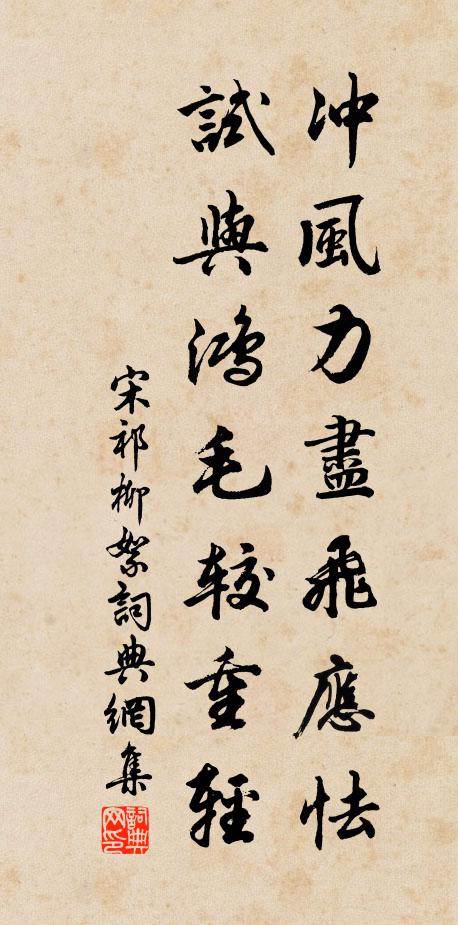 冲風力盡飛應怯
試與鴻毛較重輕
宋祁柳絮詞典網集
詞典网印